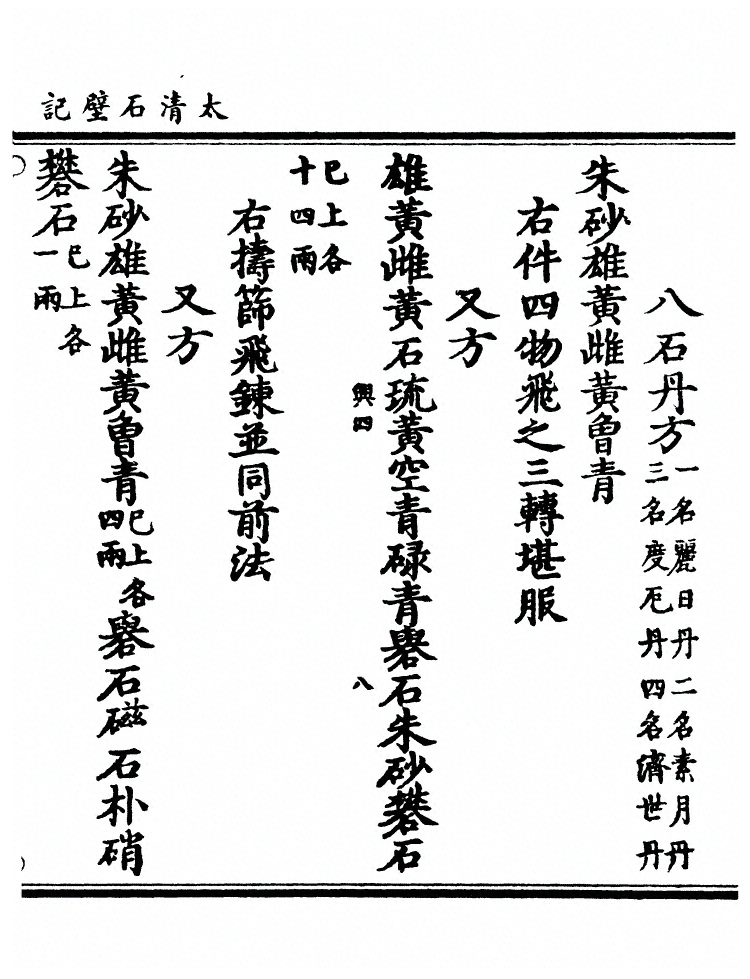 太清石壁記
八石丹方一名麗日丹二名素月丹三名度厄丹四名濟世丹
朱砂雄黃雌黃曾青
右件四物飛之三轉堪服
又方
雄黃雌黃石琉黃空青碌青礜石朱砂礬石
興四
八
巳上各十四兩
右擣篩飛鍊並同前法
又方
朱砂雄黃雌黃曾青巳上各四兩礜石磁石朴硝
礬石巳上各一兩